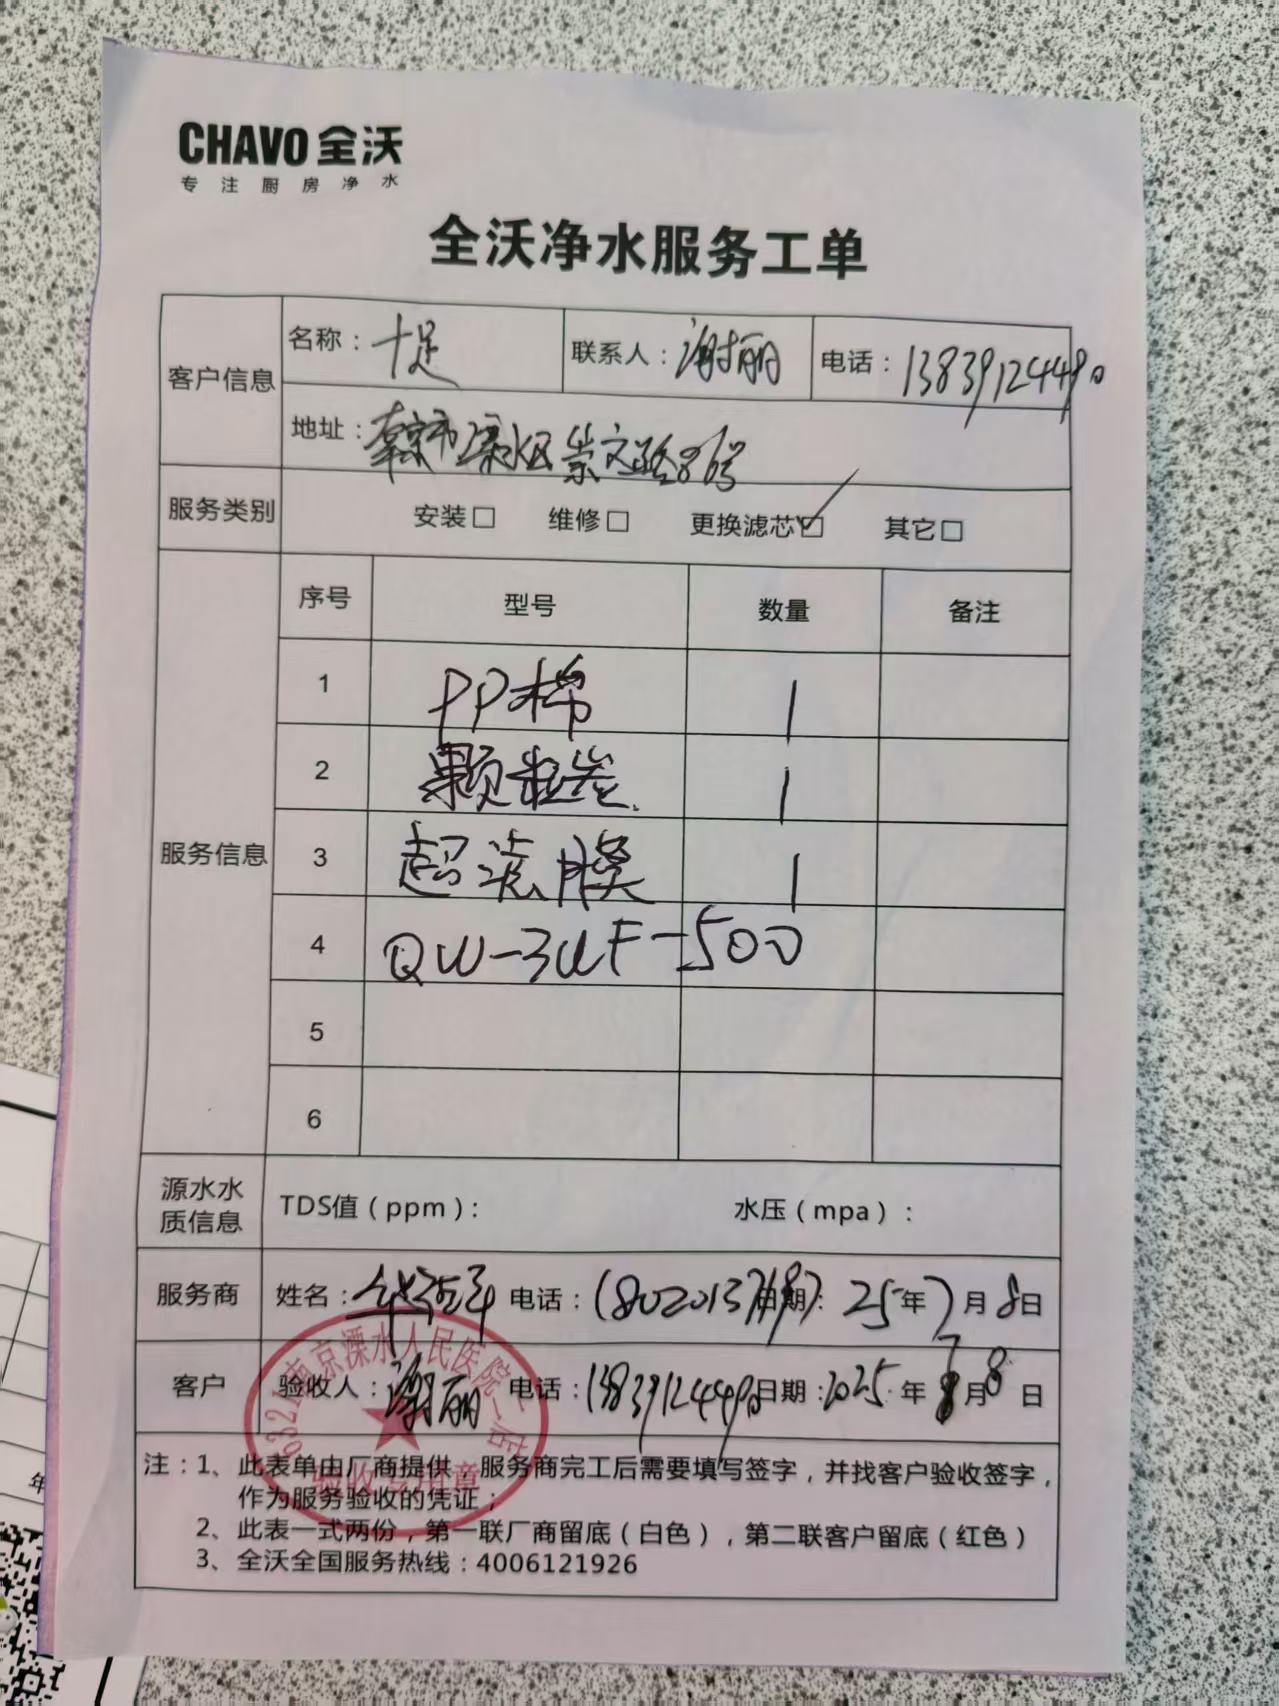 CHAVO 全沃
专注厨房净水
全沃净水服务工单
客户信息 名称：十足 联系人：谢丽 电话：13839124490
地址：南京市溧水区崇文路86号
服务类别 安装□ 维修□ 更换滤芯☑ 其它□
服务信息 序号 型号 数量 备注
1 PP棉 1
2 颗粒炭 1
3 超滤膜 1
4 QW-3UF-500
5
6
源水水质信息 TDS值（ppm）： 水压（mpa）：
服务商 姓名： 电话： 日期：25年7月8日
客户 验收人：谢丽 电话：13839124490 日期：2025年7月8日
6321南京溧水人民医院一店
验收专用章
注：1、此表单由厂商提供，服务商完工后需要填写签字，并找客户验收签字，
作为服务验收的凭证；
2、此表一式两份，第一联厂商留底（白色），第二联客户留底（红色）
3、全沃全国服务热线：4006121926
年